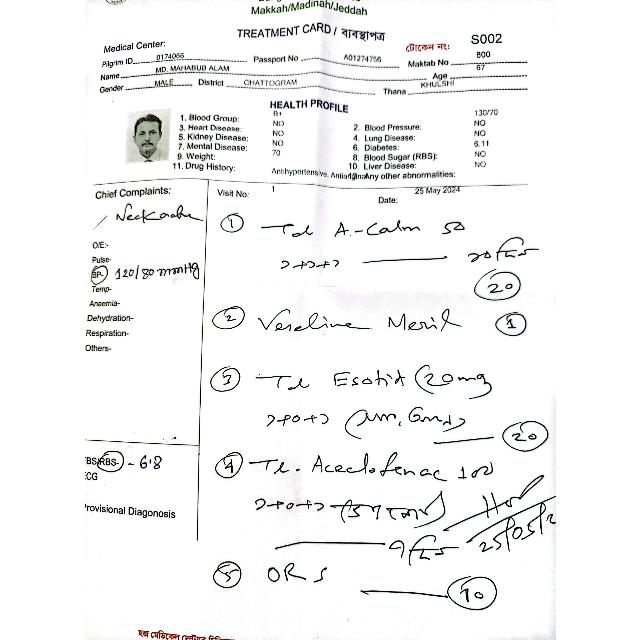 Makkah/Madinah/Jeddah
TREATMENT CARD / ব্যবস্থাপত্র
Medical Center:
টোকেন নং: S002
Pilgrim ID 0174066 Passport No A01274756 Maktab No 800
Name MD. MAHABUB ALAM Age 67
Gender MALE District CHATTOGRAM Thana KHULSHI
HEALTH PROFILE
1. Blood Group: B+ 2. Blood Pressure: 130/70
3. Heart Disease: NO 4. Lung Disease: NO
5. Kidney Disease: NO 6. Diabetes: NO
7. Mental Disease: NO 8. Blood Sugar (RBS): 6.11
9. Weight: 70 10. Liver Disease: NO
11. Drug History: Antihypertensive, Any other abnormalities: NO
Chief Complaints:
Visit No: 1 Date: 25 May 2024
/ Neckache
① Tab A-Calm 50
১+০+১ ১০ দিন
20
O/E:-
Pulse-
BP- 120/80 mmHg
Temp-
Anaemia-
Dehydration-
Respiration-
Others-
② Vaseline Meril ①
③ Tab Esotid (20mg
১+০+১
20
RBS- - 6.8
④ Tab. Aceclofenac 100
১+০+১
৭ দিন
25/05/2
Provisional Diagonosis
⑤ ORS
10